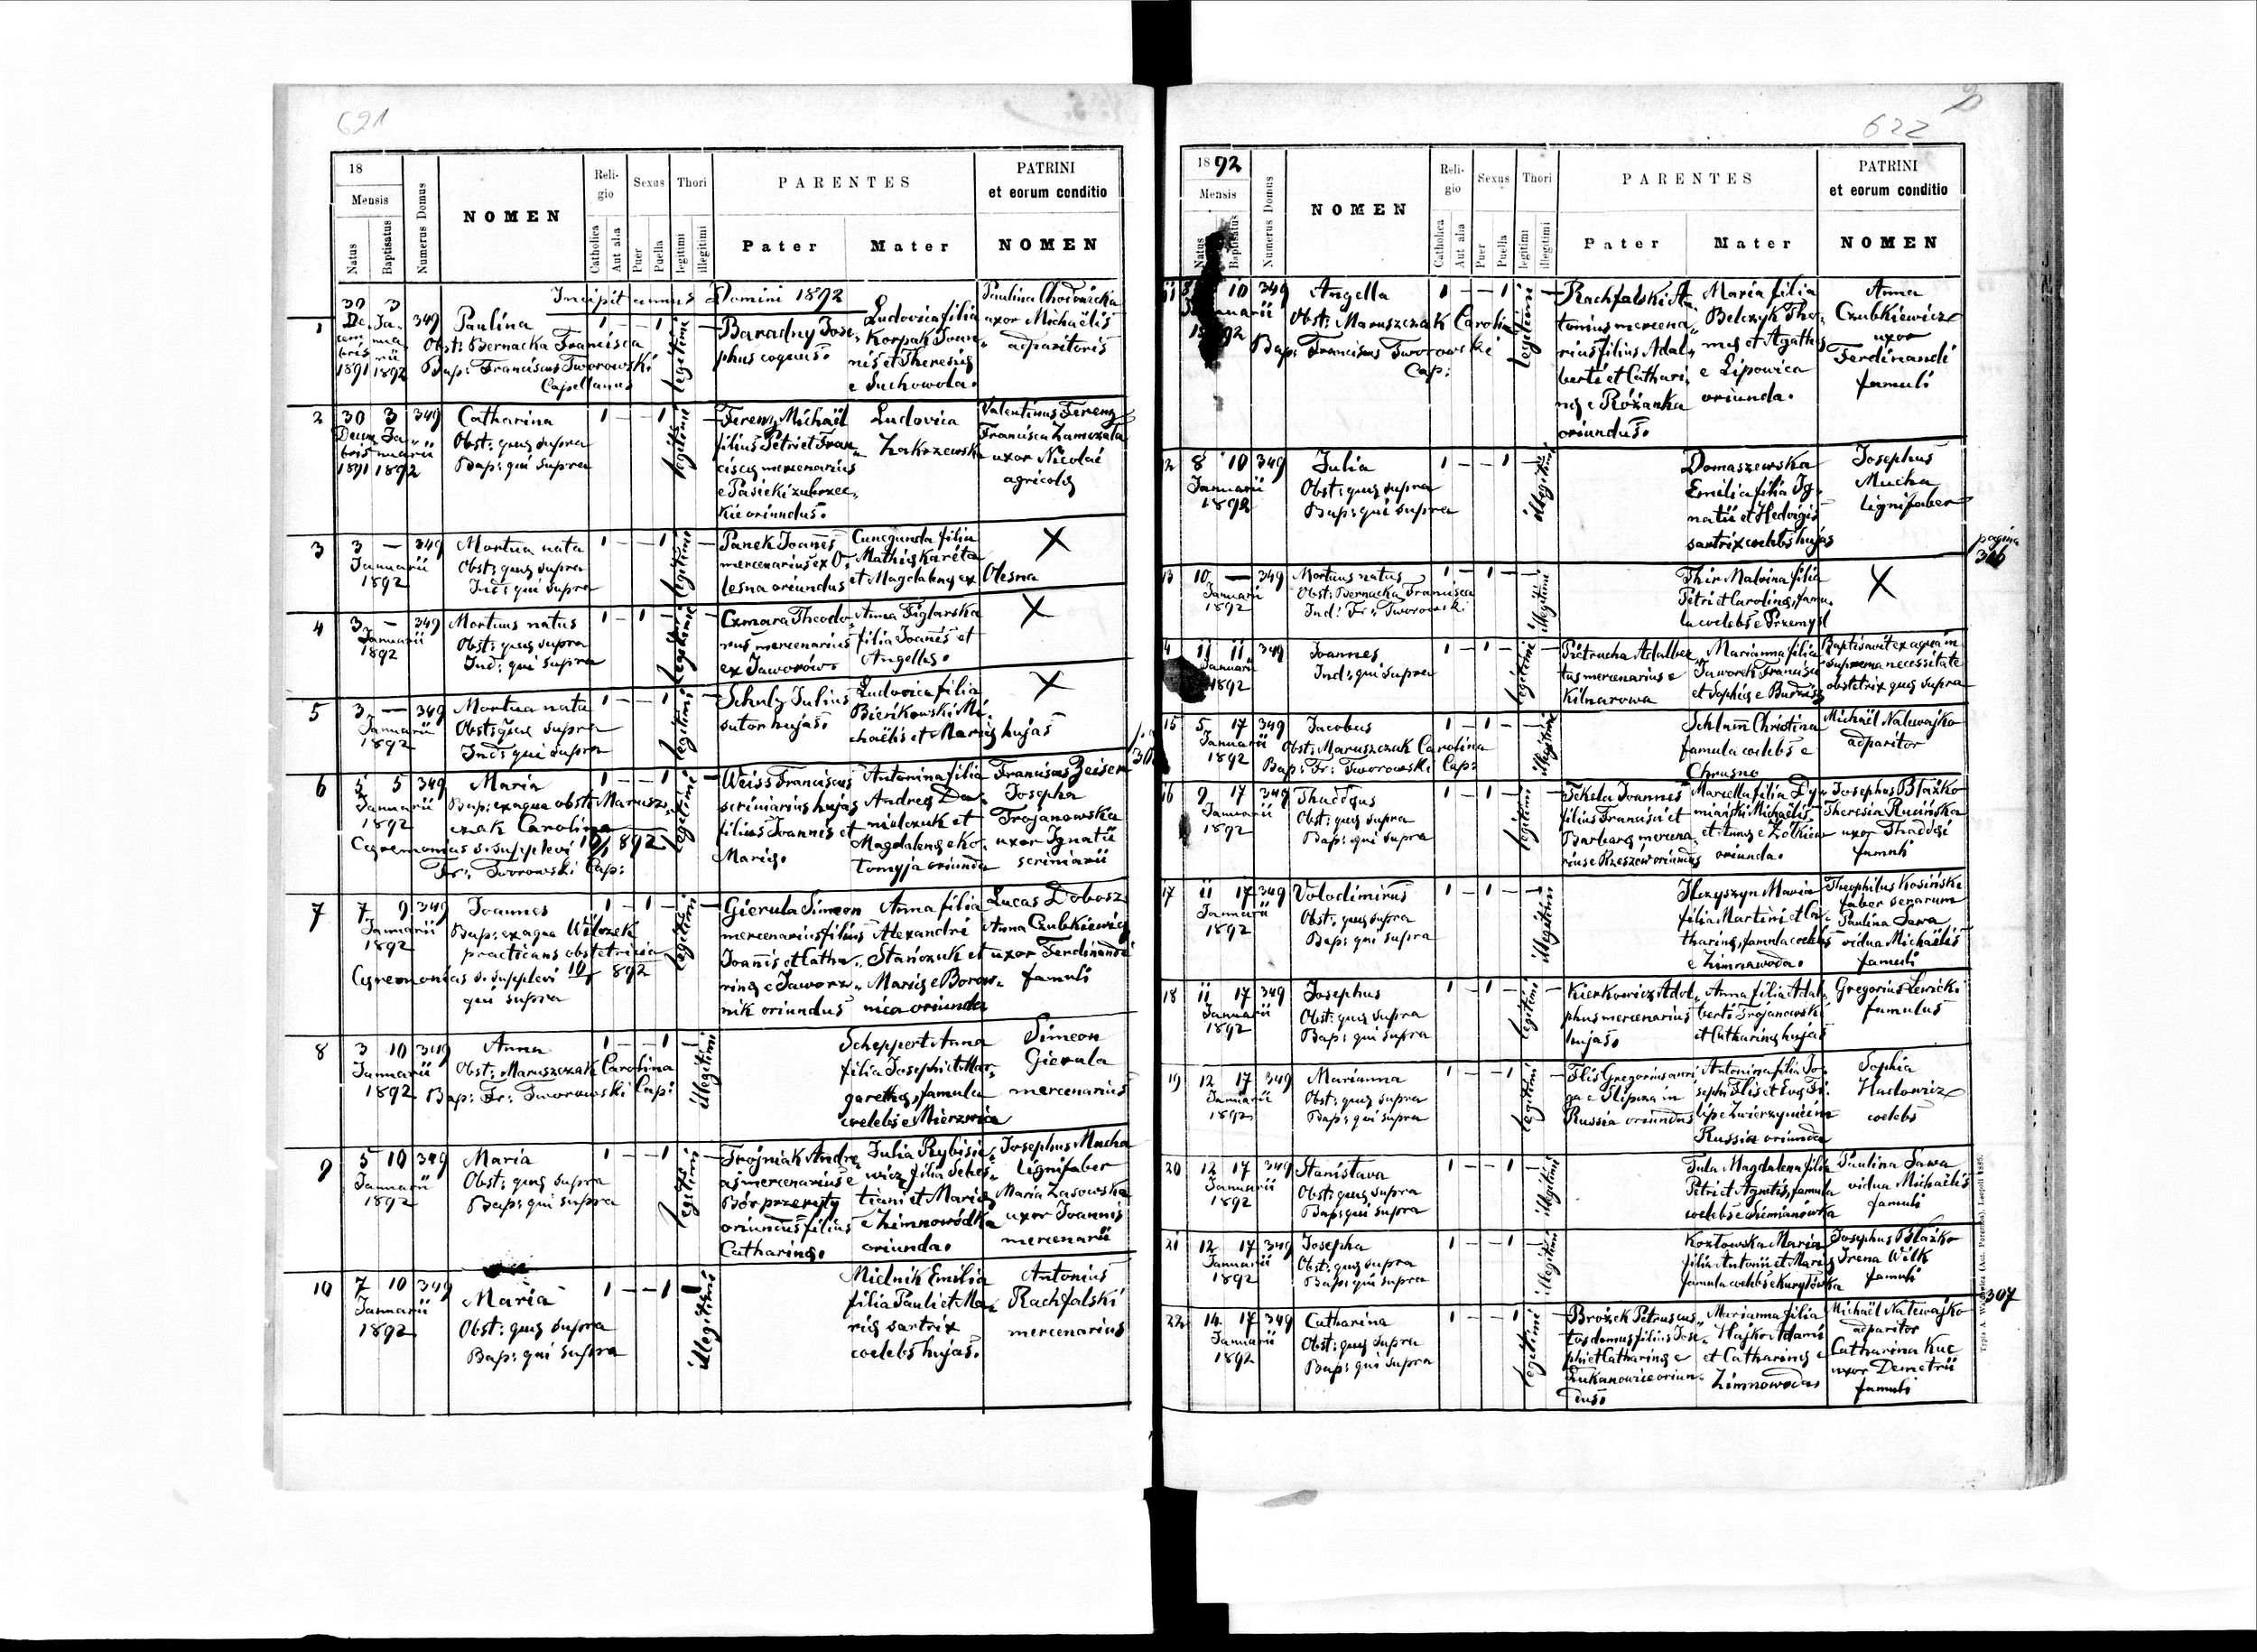 621
18
Mensis
Natus
Baptisatus
Numerus Domus
NOMEN
Reli-
gio
Catholica
Aut alia
Sexus
Puer
Puella
Thori
legitimi
illegitimi
PARENTES
Pater
Mater
PATRINI
et eorum conditio
NOMEN
Incipit annus Domini 1892
1
30 3 349 Paulina 1 – – 1 legitimi –
De- Ja-
cem nua
bris rii
1891 1892
Obst: Bernacka Francisca
Bap: Franciscus Tworowski
Capellanus
Baradny Jose-
phus coquus.
Ludovica filia
Korpak Joan-
nis et Theresiæ
e Suchowola.
Paulina Chodowicka
uxor Michaëlis
adparitoris
2
30 3 349 Catharina 1 – – 1 legitimi –
Decem Ja-
bris nuarii
1891 1892
Obst: quæ supra
Bap: qui supra
Ferenz Michaël
filius Petri et Fran-
ciscæ mercenarius
e Pasieki zubrzec-
kie oriundus.
Ludovica
Zakrzewska
Valentinus Ferenz
Francisca Zamczała
uxor Nicolai
agricolæ
3
3 – 349 Mortua nata 1 – – 1 legitimi –
Januarii
1892
Obst: quæ supra
Ind: qui supra
Panek Joannes
mercenarius ex O-
lesna oriundus
Cunegunda filia
Mathiæ Kareta
et Magdalenæ ex Olesna
X
4
3 – 349 Mortuus natus 1 – 1 – legitimi –
Januarii
1892
Obst: quæ supra
Ind: qui supra
Czmara Theodo-
rus mercenarius
ex Jaworów.
Anna Figlarska
filia Joannis et
Angellæ.
X
5
3 – 349 Mortua nata 1 – – 1 legitimi –
Januarii
1892
Obst: quæ supra
Ind: qui supra
Schulz Julius
sutor hujas.
Ludovica filia
Bierikowski Mi-
chaëlis et Mariæ hujas
X
6
5 5 349 Maria 1 – – 1 legitimi –
Januarii
1892
Bap: ex aqua obst: Marusz-
czak Carolina
Cæremonias s. supplevi 10/1 892
Fr: Tworowski Cap:
Weiss Franciscus
scriniarius hujas
filius Joannis et
Mariæ.
Antonina filia
Andreæ Da-
nielczuk et
Magdalenæ e Ko-
łomyja oriunda
Franciscus Zeiser
Josepha
Trojanowska
uxor Ignatii
scriniarii
7
7 9 349 Joannes 1 – 1 – legitimi –
Januarii
1892
Bap: ex aqua Wilczek
practicans obstetricia
Cæremonias s. supplevi 10/1 892
qui supra
Gierula Simeon
mercenarius filius
Joannis et Catha-
rinæ e Jaworz-
nik oriundus
Anna filia
Alexandri
Stańczuk et
Mariæ e Borow-
nica oriunda
Lucas Dobosz
Anna Czubkiewicz
uxor Ferdinandi
famuli
8
3 10 349 Anna 1 – – 1 illegitimi
Januarii
1892
Obst: Maruszczak Carolina
Bap: Fr: Tworowski Cap:
Scheppert Anna
filia Josephi et Mar-
garethæ, famula
coelebs e Mierzwia
Simeon
Gierula
mercenarius
9
5 10 349 Maria 1 – – 1 legitimi –
Januarii
1892
Obst: quæ supra
Bap: qui supra
Trojniak Andre-
as mercenarius e
Bór przeręty
oriundus filius
Catharinæ.
Julia Rybisie-
wicz filia Sebas-
tiani et Mariæ
e Zimnowódka
oriunda.
Josephus Mucha
lignifaber
Maria Zasowska
uxor Joannis
mercenarii
10
7 10 349 Maria 1 – – 1 illegitimi
Januarii
1892
Obst: quæ supra
Bap: qui supra
Mielnik Emilia
filia Pauli et Ma-
riæ sartrix
coelebs hujas.
Antonius
Rachfalski
mercenarius
622
1892
Mensis
Natus
Baptisatus
Numerus Domus
NOMEN
Reli-
gio
Catholica
Aut alia
Sexus
Puer
Puella
Thori
legitimi
illegitimi
PARENTES
Pater
Mater
PATRINI
et eorum conditio
NOMEN
11
10 349 Angella 1 – – 1 legitimi –
Januarii
1892
Obst: Maruszczak Carolina
Bap: Franciscus Tworowski
Cap:
Rachfalski An-
tonius mercena-
rius filius Adal-
berti et Cathari-
næ e Różanka
oriundus.
Maria filia
Belczyk Tho-
mæ et Agathæ
e Lipowica
oriunda.
Anna
Czubkiewicz
uxor
Ferdinandi
famuli
12
8 10 349 Julia 1 – – 1 illegitimi
Januarii
1892
Obst: quæ supra
Bap: qui supra
Domaszewska
Emilia filia Ig-
natii et Hedvigis
sartrix coelebs hujas
Josephus
Mucha
lignifaber
pagina
306
13
10 – 349 Mortuus natus 1 – 1 – illegitimi
Januarii
1892
Obst: Bernacka Francisca
Ind: Fr: Tworowski
Thir Malvina filia
Petri et Carolinæ, famu-
la coelebs e Przemyśl
X
14
11 11 349 Joannes 1 – 1 – legitimi –
Januarii
1892
Ind: qui supra
Pietrucha Adalber-
tus mercenarius e
Kilnarowa
Marianna filia
Jaworek Francisci
et Sophiæ e Budzisz
Baptisavit ex aqua in
suprema necessitate
obstetrix quæ supra
15
5 17 349 Jacobus 1 – 1 – illegitimi
Januarii
1892
Obst: Maruszczak Carolina
Bap: Fr: Tworowski Cap:
Schlamm Christina
famula coelebs e
Chrusno
Michaël Nalewajko
adparitor
16
9 17 349 Thaddæus 1 – 1 – legitimi –
Januarii
1892
Obst: quæ supra
Bap: qui supra
Tekela Joannes
filius Francisci et
Barbaræ mercena-
rius e Rzeszów oriundus
Marcella filia Dy-
miański Michaëlis
et Annæ e Żółkiew
oriunda.
Josephus Błażko
Theresia Rucińska
uxor Thaddæi
famuli
17
11 17 349 Volodimirus 1 – 1 – illegitimi
Januarii
1892
Obst: quæ supra
Bap: qui supra
Hczyszyn Maria
filia Martini et Ca-
tharinæ, famula coelebs
e Zimnawoda.
Theophilus Kosiński
faber serarum
Paulina Sawa
vidua Michaëlis
famuli
18
11 17 349 Josephus 1 – 1 – legitimi –
Januarii
1892
Obst: quæ supra
Bap: qui supra
Kierkowicz Adol-
phus mercenarius
hujas.
Anna filia Adal-
berti Trojanowski
et Catharinæ hujas
Gregorius Lewicki
famulus
19
12 17 349 Marianna 1 – – 1 legitimi –
Januarii
1892
Obst: quæ supra
Bap: qui supra
Flis Gregorius auri-
ga e Slipcza in
Russia oriundus
Antonina filia Jo-
sephi Flis et Evæ Fi-
lip e Zwierzyniec in
Russia oriunda
Sophia
Huslowicz
coelebs
20
12 17 349 Stanislava 1 – – 1 illegitimi
Januarii
1892
Obst: quæ supra
Bap: qui supra
Tula Magdalena filia
Petri et Agnetis, famula
coelebs e Siemianowka
Paulina Sawa
vidua Michaëlis
famuli
21
12 17 349 Josepha 1 – – 1 illegitimi
Januarii
1892
Obst: quæ supra
Bap: qui supra
Kozłowska Maria
filia Antonii et Mariæ
famula coelebs e Kuryłówka
Josephus Błażko
Irena Wilk
famuli
307
22
14 17 349 Catharina 1 – – 1 legitimi –
Januarii
1892
Obst: quæ supra
Bap: qui supra
Brożek Petrus cus-
tos domus filius Jose-
phi et Catharinæ e
Łukanowice oriun-
dus.
Marianna filia
Hajko Adami
et Catharinæ e
Zimnowodas
Michaël Nalewajko
adparitor
Catharina Kuc
uxor Demetrii
famuli